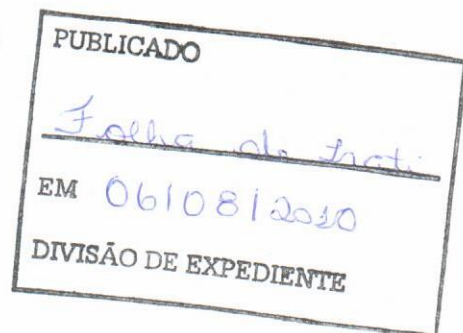 PUBLICADO
Folha de Irati
EM 06/08/2010
DIVISÃO DE EXPEDIENTE